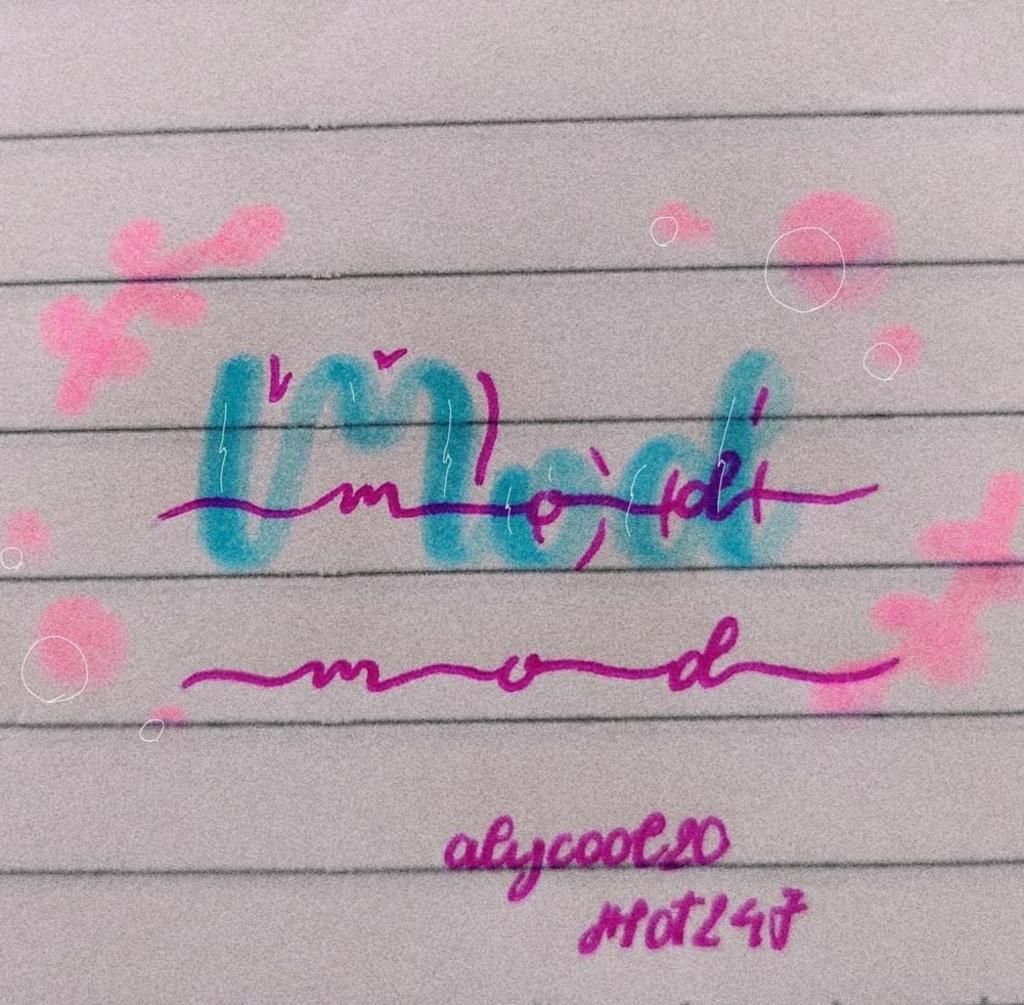 Mod
mod
mod
alycool20
Hot247